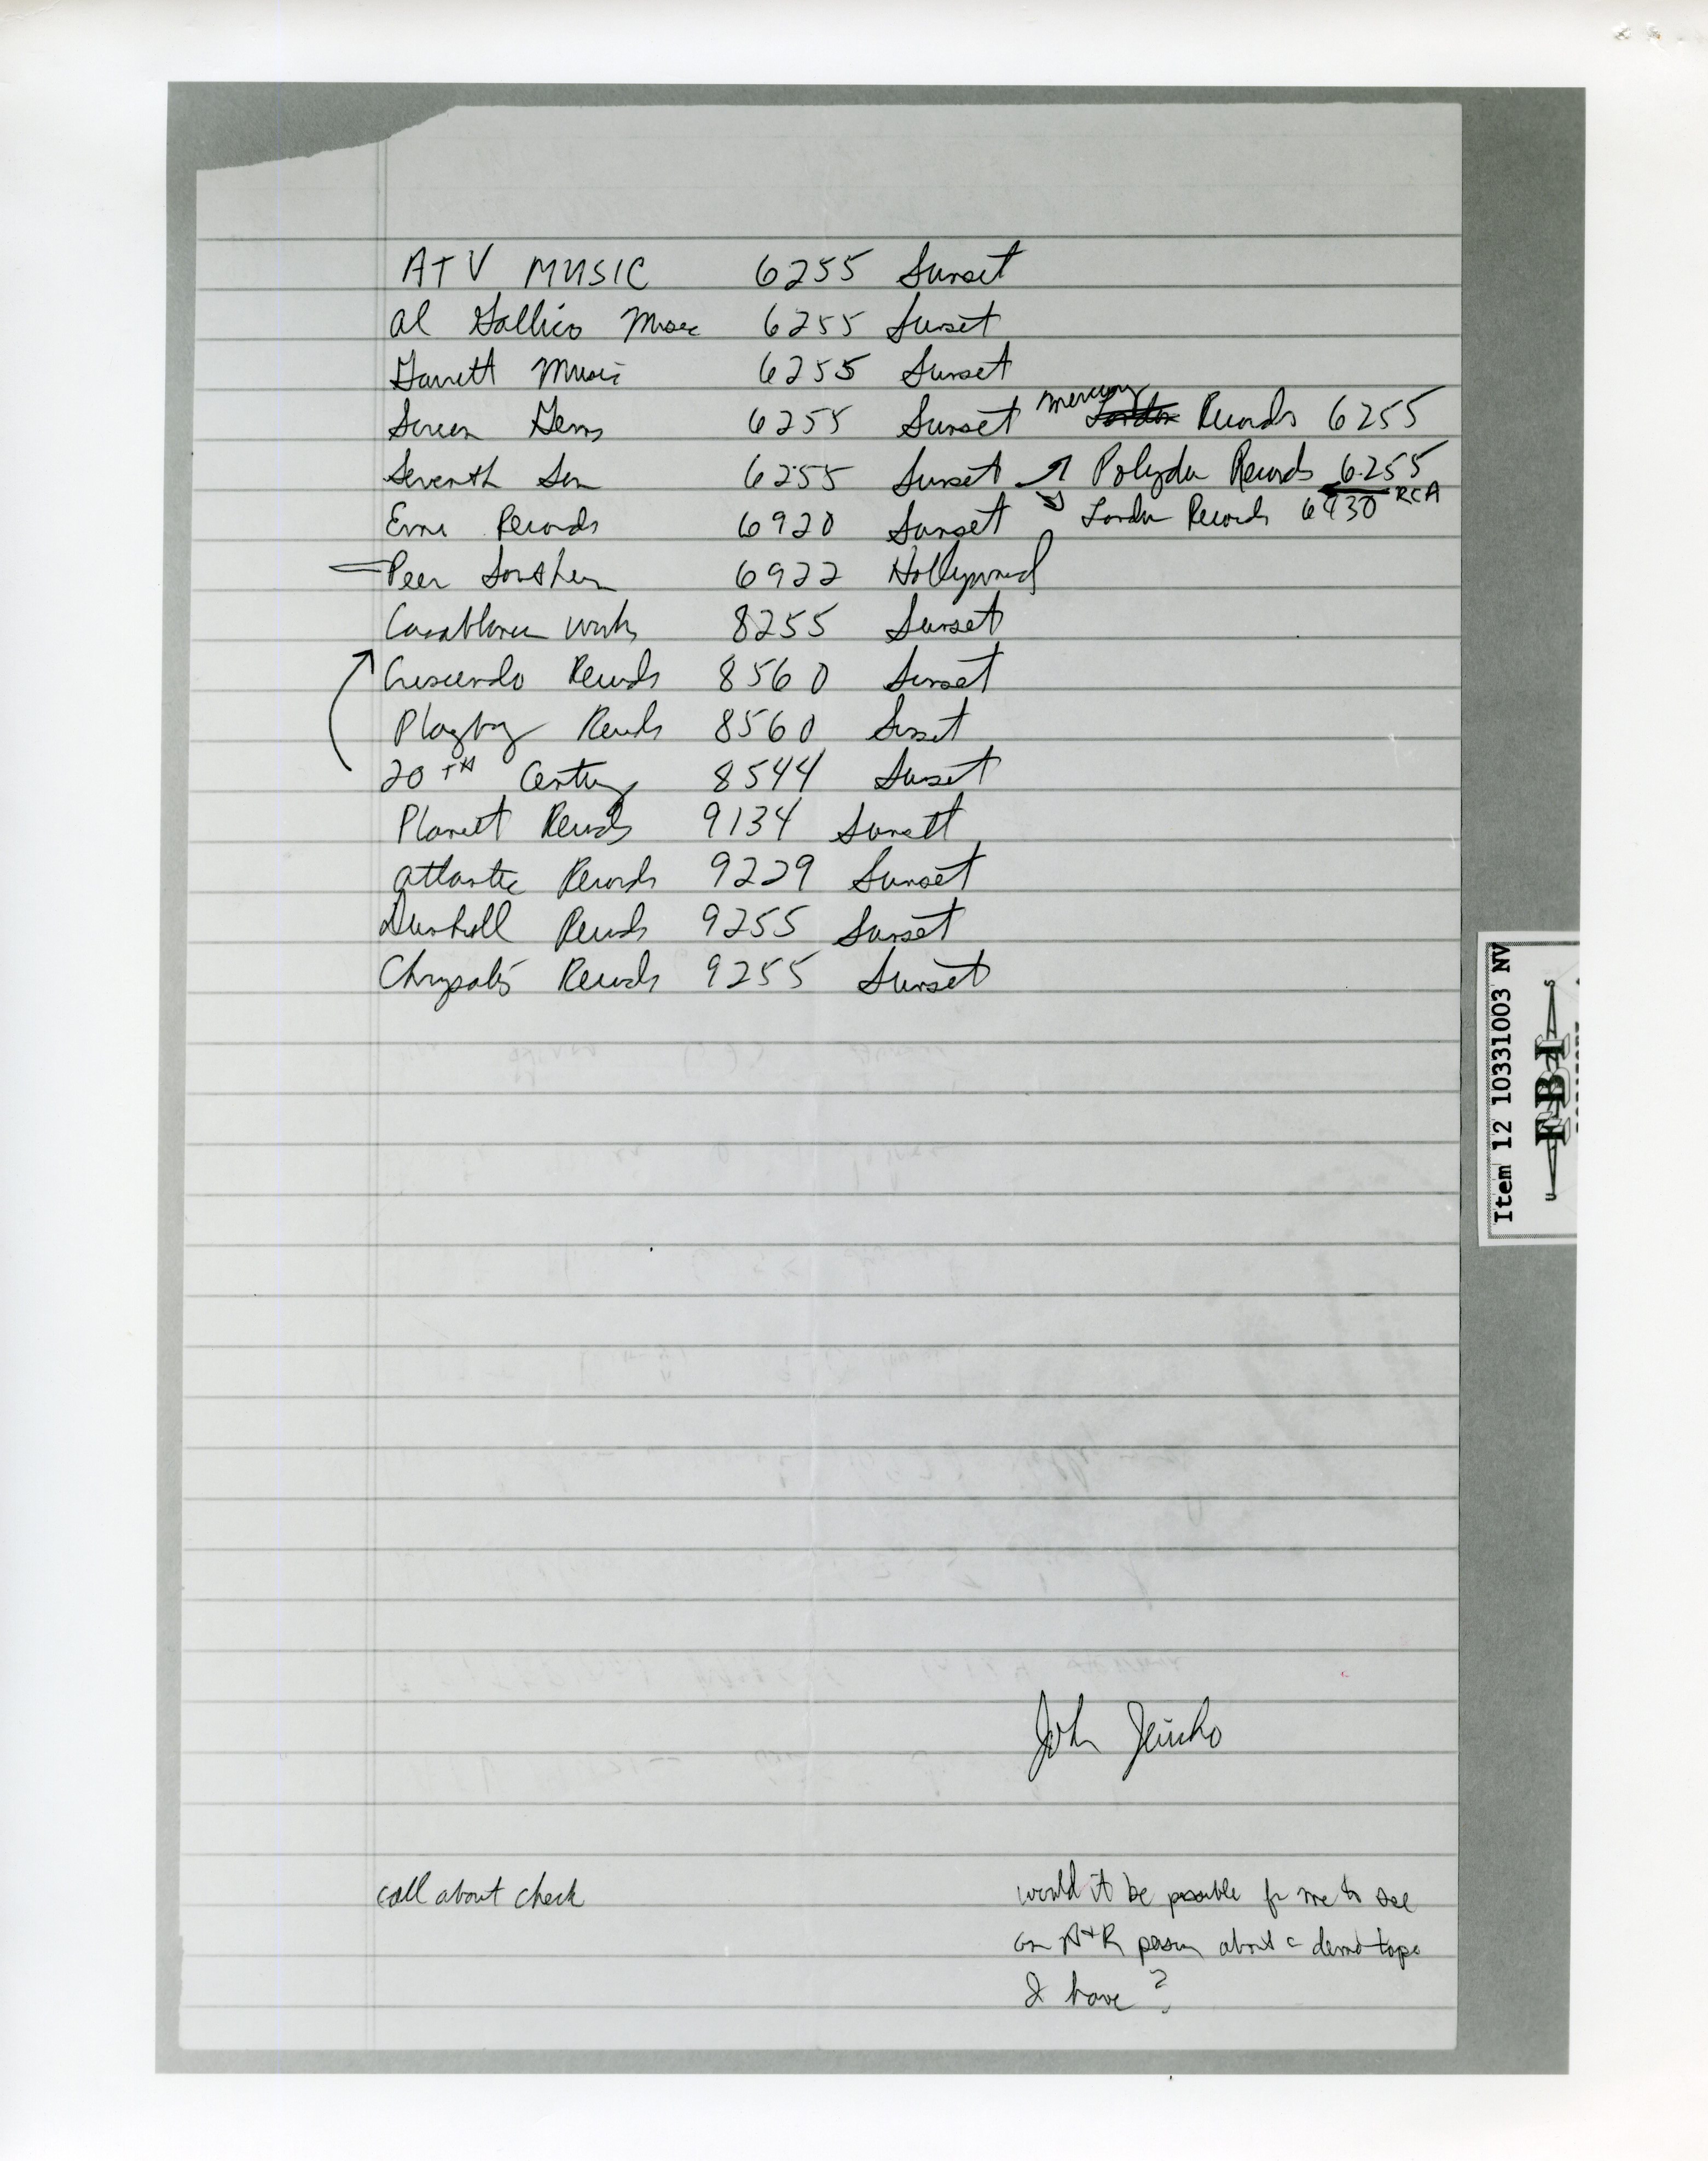 ATV MUSIC 6255 Sunset
Al Gallico Music 6255 Sunset
Garrett Music 6255 Sunset
Screen Gems 6255 Sunset Mercury London Records 6255
Seventh Son 6255 Sunset Polydor Records 6255
Emi Records 6920 Sunset London Records 6430 RCA
Peer Southern 6922 Hollywood
Casablanca works 8255 Sunset
Crescendo Records 8560 Sunset
Playboy Records 8560 Sunset
20TH Century 8544 Sunset
Planett Records 9134 Sunsett
Atlantic Records 9229 Sunset
Dunhill Records 9255 Sunset
Chrysalis Records 9255 Sunset
Item 12 10331003 NV
FBI
John Jericho
call about check
would it be possible for me to see
an A+R person about a demo tape
I have?